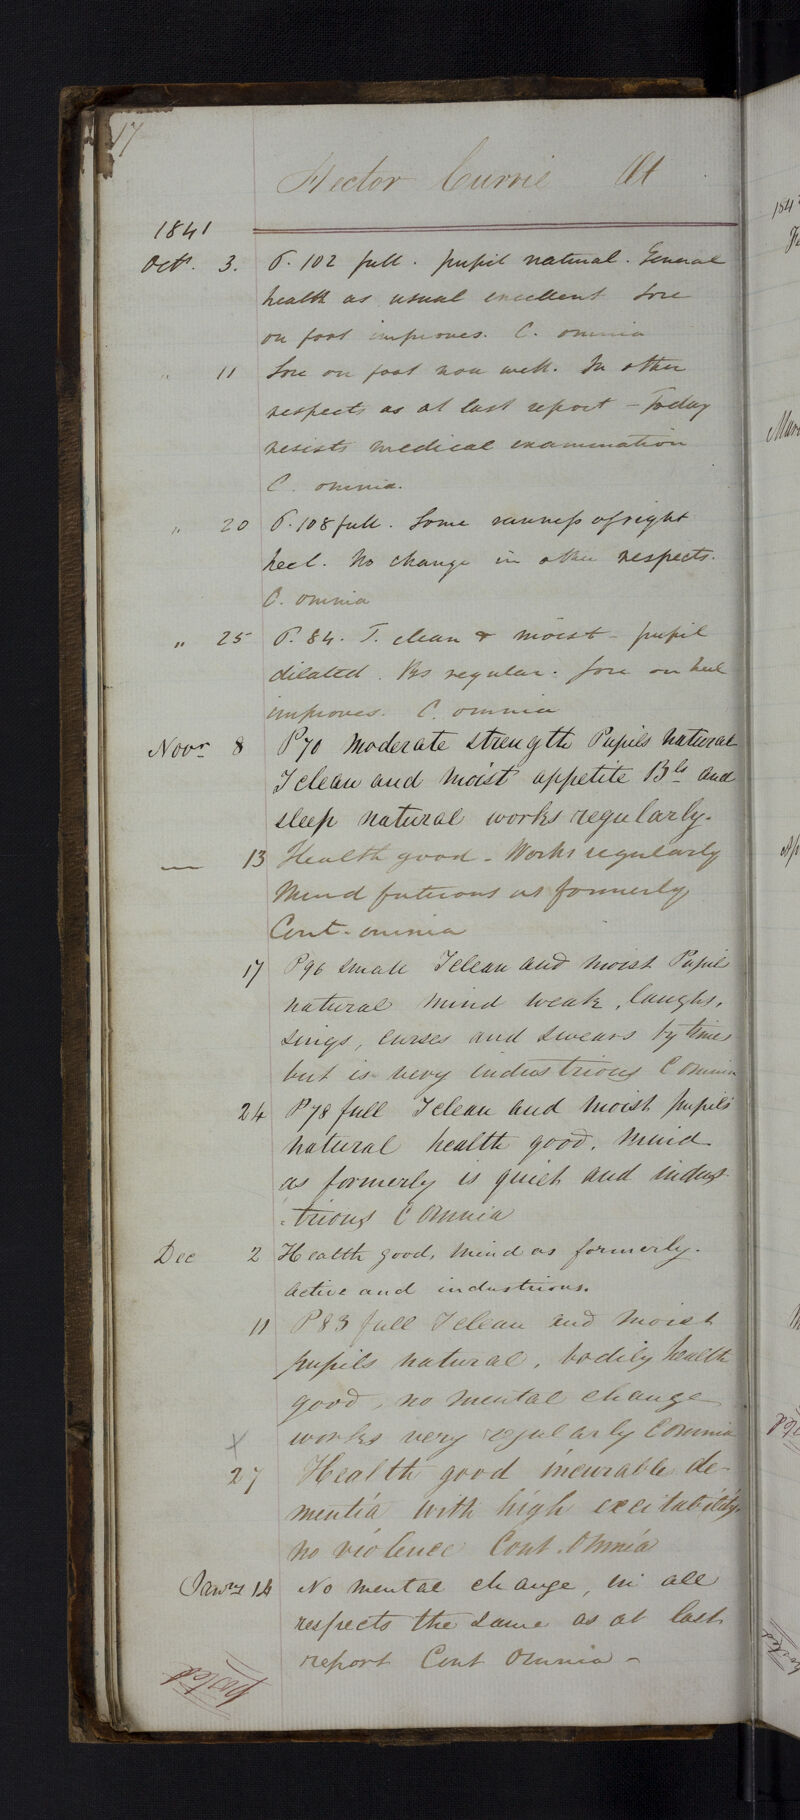 17
Hector Currie At
1841
Octr. 3. P. 102 full. pupil natural. General
health as usual excellent Sore
on foot improves. C. omnia
" 11 Sore on foot now well. In other
respects as at last report - Today
resists medical examination
C. omnia.
" 20 P. 108 full. Some rawness of right
heel. No change in other respects.
C. omnia
" 25 P. 84. T. clean & moist - pupil
dilated. Bs regular. Sore on heel
improves. C. omnia
Novr 8 P 70 moderate strength Pupils natural
T clean and moist appetite Bls and
sleep natural works regularly.
— 13 Health good - Works regularly
Mind fatuous as formerly
Cont. omnia
17 P 96 small T clean and moist Pupils
natural mind weak, laughs,
sings, curses and swears by times
but is very industrious C omnia
24 P 78 full T clean and moist pupils
natural health good. Mind
as formerly is quiet and indus
-trious C Omnia
Dec 2 Health good, mind as formerly.
active and industrious.
11 P 83 full T clean and moist
pupils natural, bodily health
good, no mental change
works very regularly C omnia
x
27 Health good incurable de-
mentia with high excitability.
no violence Cont. Omnia
Janry 14 No mental change, in all
respects the same as at last
report Cont Omnia -
posted